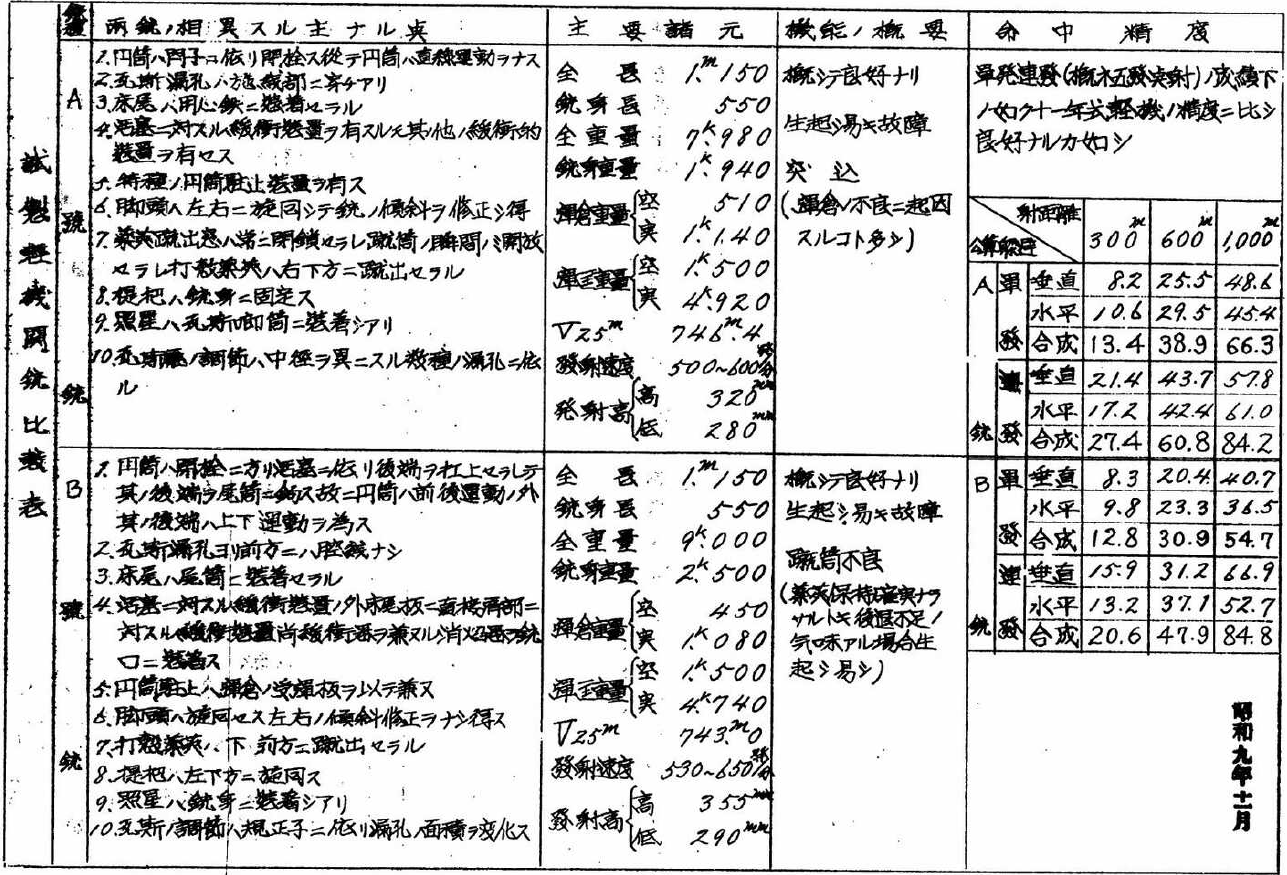 試製軽機関銃比較表
銃種
両銃ノ相異スル主ナル点
主要諸元
機能ノ概要
命中精度
A号銃
1.円筒ハ閂子ニ依リ閉栓ス従テ円筒ハ直線運動ヲナス
2.瓦斯漏孔ハ施綫部ニ穿チアリ
3.床尾ハ用心鉄ニ装着セラル
4.活塞ニ対スル緩衝装置ヲ有スルモ其ノ他ノ緩衝的
装置ヲ有セス
5.特種ノ円筒駐止装置ヲ有ス
6.脚頭ハ左右ニ旋回シテ銃ノ傾斜ヲ修正シ得
7.薬莢蹴出窓ハ常ニ閉鎖セラレ蹴筒ノ瞬間ノミ開放
セラレ打殻薬莢ハ右下方ニ蹴出セラル
8.提把ハ銃身ニ固定ス
9.照星ハ瓦斯喞筒ニ装着シアリ
10.瓦斯ノ調節ハ中径ヲ異ニスル数種ノ漏孔ニ依
ル
全長 1.m150
銃身長 550
全重量 7.K980
銃身重量 1.K940
弾倉重量 空 510
実 1.K140
弾匣重量 空 1.K500
実 4.K920
V25m 746.m4
發射速度 500~600発/分
発射高 高 320mm
低 280mm
概シテ良好ナリ
生起シ易キ故障
突込
(弾倉ノ不良ニ起因
スルコト多シ)
單発連發(概ネ五發点射)ノ成績下
ノ如ク十一年式軽機ノ精度ニ比シ
良好ナルカ如シ
射距離
公算躱避
300m 600m 1,000m
A号銃
單發 垂直 8.2 25.5 48.6
水平 10.6 29.5 45.4
合成 13.4 38.9 66.3
連發 垂直 21.4 43.7 57.8
水平 17.2 42.4 61.0
合成 27.4 60.8 84.2
B号銃
1.円筒ハ閉栓ニ方リ活塞ニ依リ後端ヲ扛上セラレテ
其ノ後端ヲ尾筒ニ鈎ス故ニ円筒ハ前後運動ノ外
其ノ後端ハ上下運動ヲ為ス
2.瓦斯漏孔ヨリ前方ニハ腔綫ナシ
3.床尾ハ尾筒ニ装着セラル
4.活塞ニ対スル緩衝装置ノ外床尾板ニ直接肩部ニ
対スル緩衝装置尚緩衝器ヲ兼ヌル消焰器ヲ銃
口ニ装着ス
5.円筒駐止ハ弾倉ノ受弾板ヲ以テ兼ヌ
6.脚頭ハ旋回セス左右ノ傾斜修正ヲナシ得ス
7.打殻薬莢ハ下前方ニ蹴出セラル
8.提把ハ左下方ニ旋回ス
9.照星ハ銃身ニ装着シアリ
10.瓦斯ノ調節ハ規正子ニ依リ漏孔ノ面積ヲ変化ス
全長 1.m150
銃身長 550
全重量 9.K000
銃身重量 2.K500
弾倉重量 空 450
実 1.K080
弾匣重量 空 1.K500
実 4.K740
V25m 743.m0
發射速度 530~650発/分
發射高 高 355mm
低 290mm
概シテ良好ナリ
生起シ易キ故障
蹴筒不良
(薬莢保持確実ナラ
サルトキ後退不足ノ
気味アル場合生
起シ易シ)
B号銃
單發 垂直 8.3 20.4 40.7
水平 9.8 23.3 36.5
合成 12.8 30.9 54.7
連發 垂直 15.9 31.2 66.9
水平 13.2 37.1 52.7
合成 20.6 47.9 84.8
昭和九年十二月